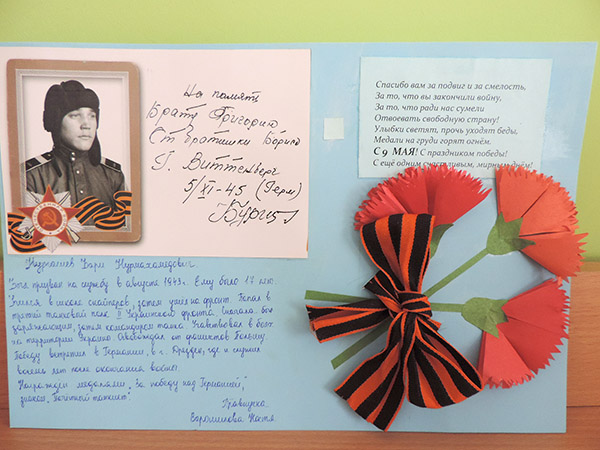 На память
Брату Григорию
От братишки Бориса
Г. Виттенберг
5/XI-45 (Герм)
Спасибо вам за подвиг и за смелость,
За то, что вы закончили войну,
За то, что ради нас сумели
Отвоевать свободную страну!
Улыбки светят, прочь уходят беды,
Медали на груди горят огнём.
С 9 МАЯ! С праздником победы!
С ещё одним счастливым, мирным днём!
Нурмахамедович
был призван на службу в августе 1943 г. Ему было 17 лет.
Учился в школе снайперов, затем ушел на фронт. Попал в
третий танковый полк II Украинского фронта. Сначала был
заряжающим, затем командиром танка. Участвовал в боях
на территории Украины. Освобождал от фашистов Польшу.
Победу встретил в Германии, в г. Дрезден, где и служил
восемь лет после окончания войны.
Награжден медалями „За победу над Германией",
знаком „Почетный танкист".
Правнучка
Настя